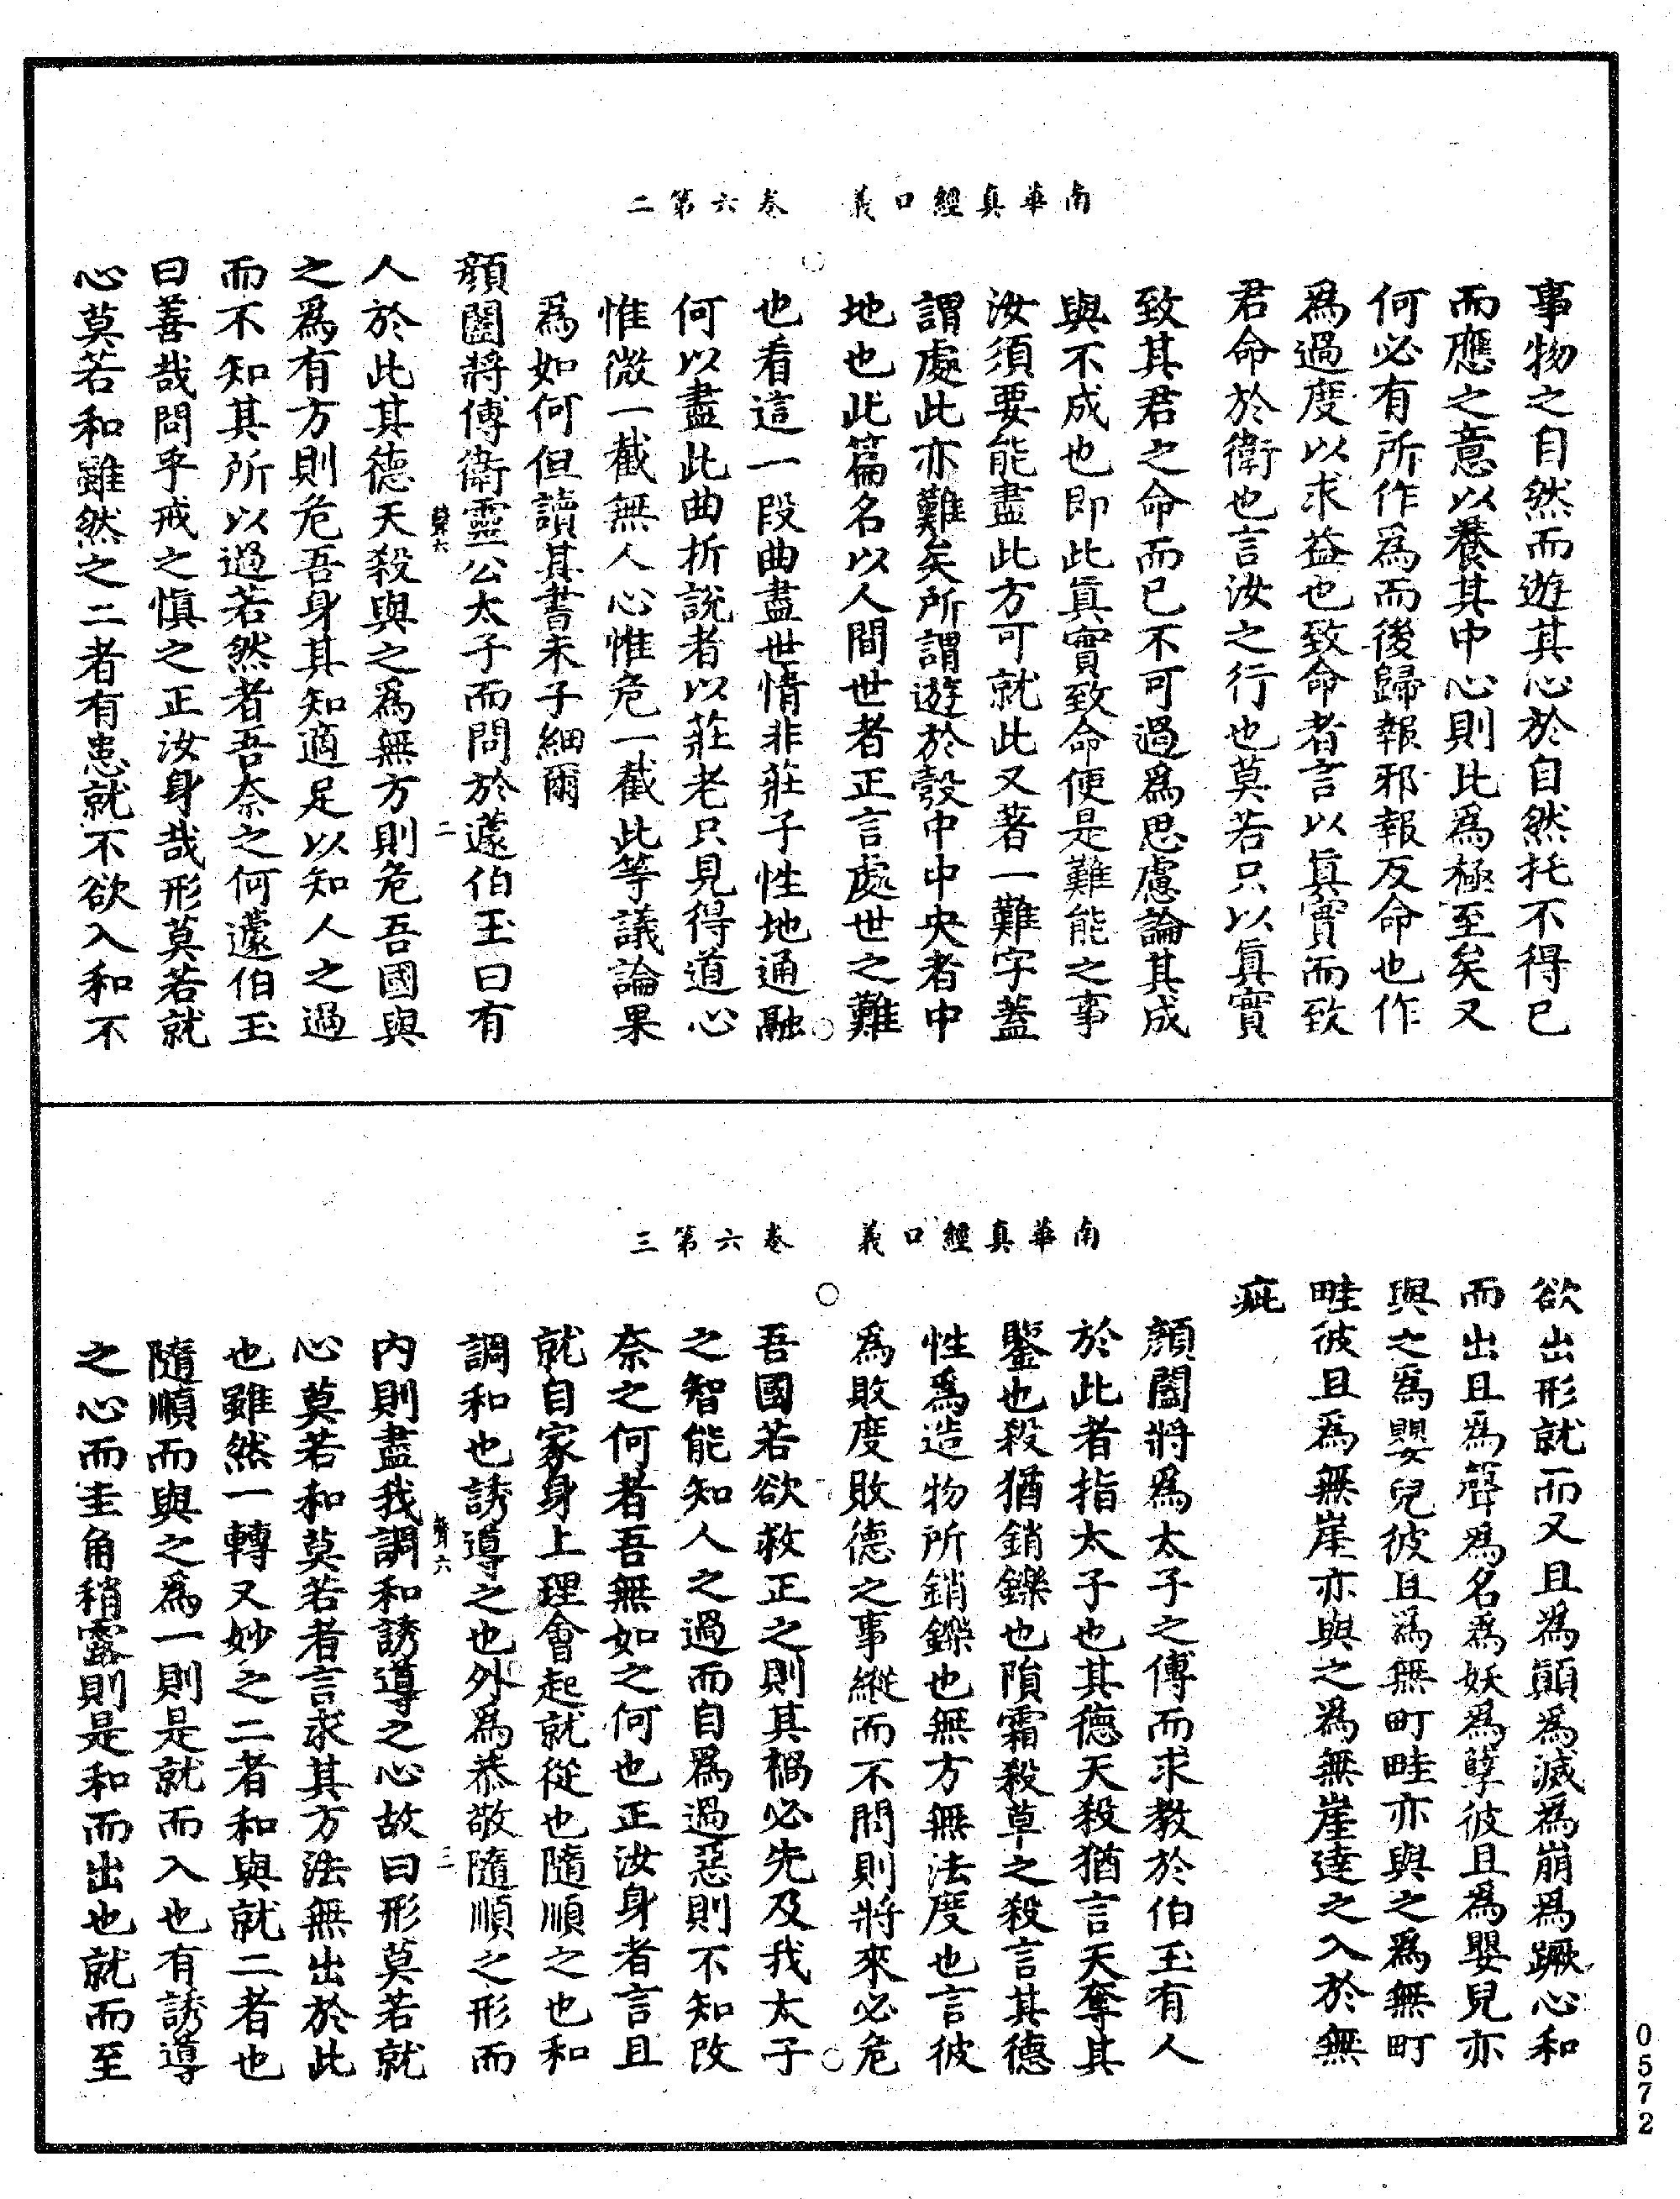 南華真經口義　卷六第二
事物之自然而遊其心於自然托不得已
而應之意以養其中心則此為極至矣又
何必有所作為而後歸報邪報反命也作
為過度以求益也致命者言以真實而致
君命於衛也言汝之行也莫若只以真實
致其君之命而已不可過為思慮論其成
與不成也即此真實致命便是難能之事
汝須要能盡此方可就此又著一難字蓋
謂處此亦難矣所謂遊於彀中中央者中
地也此篇名以人間世者正言處世之難
也看這一段曲盡世情非莊子性地通融
何以盡此曲折說者以莊老只見得道心
惟微一截無人心惟危一截此等議論果
為如何但讀其書未子細爾
顏闔將傅衛靈公太子而問於蘧伯玉曰有
聲六
二
人於此其德天殺與之為無方則危吾國與
之為有方則危吾身其知適足以知人之過
而不知其所以過若然者吾奈之何蘧伯玉
曰善哉問乎戒之慎之正汝身哉形莫若就
心莫若和雖然之二者有患就不欲入和不
南華真經口義　卷六第三
欲出形就而又且為顛為滅為崩為蹶心和
而出且為聲為名為妖為孽彼且為嬰兒亦
與之為嬰兒彼且為無町畦亦與之為無町
畦彼且為無崖亦與之為無崖達之入於無
疵
顏闔將為太子之傅而求教於伯玉有人
於此者指太子也其德天殺猶言天奪其
鑒也殺猶銷鑠也隕霜殺草之殺言其德
性為造物所銷鑠也無方無法度也言彼
為敗度敗德之事縱而不問則將來必危
吾國若欲救正之則其禍必先及我太子
之智能知人之過而自為過惡則不知改
奈之何者吾無如之何也正汝身者言且
就自家身上理會起就從也隨順之也和
調和也誘導之也外為恭敬隨順之形而
聲六
三
內則盡我調和誘導之心故曰形莫若就
心莫若和莫若者言求其方法無出於此
也雖然一轉又妙之二者和與就二者也
隨順而與之為一則是就而入也有誘導
之心而圭角稍露則是和而出也就而至
0572